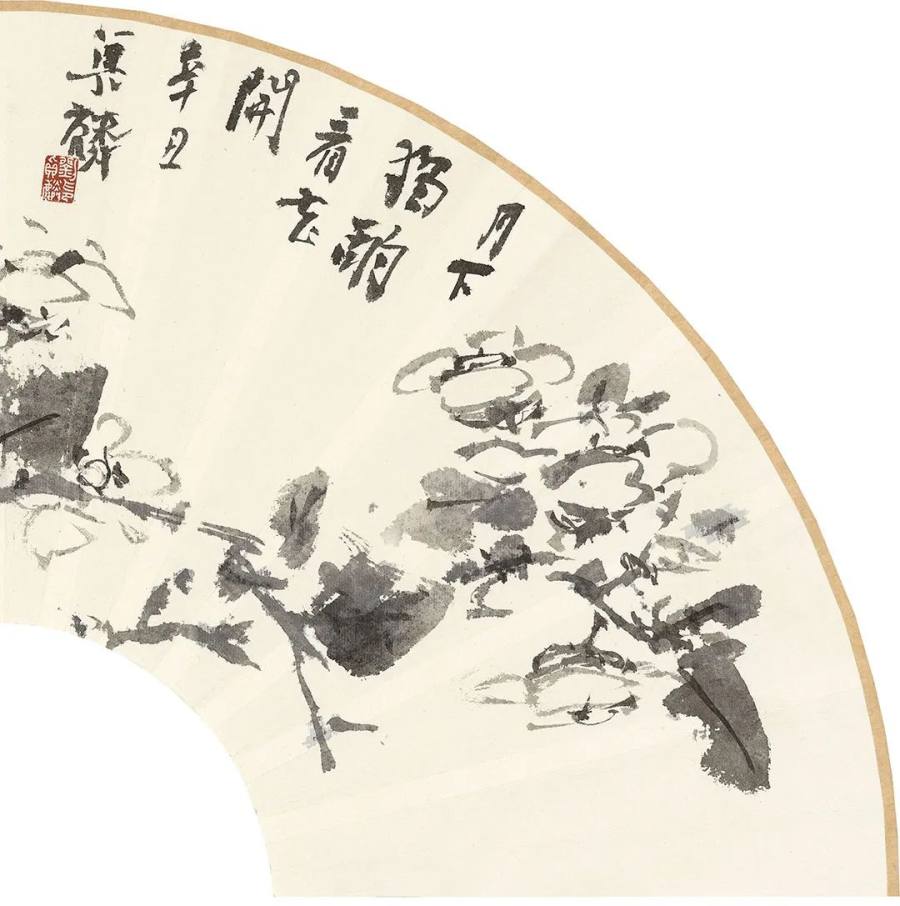 月下
獨酌
看花
開
辛丑